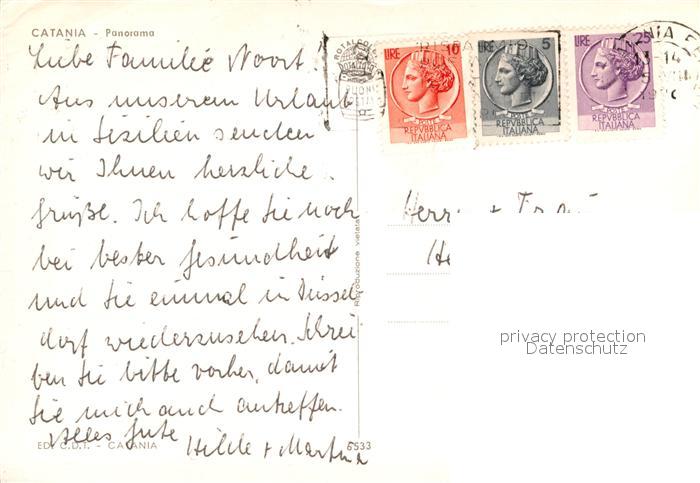 CATANIA - Panorama
Liebe Familie Noort.
Aus unserem Urlaub
in Sizilien senden
wir Ihnen herzliche
Grüße. Ich hoffe Sie noch
bei bester Gesundheit
und Sie einmal in Düssel
dorf wiederzusehen. Schrei
ben Sie bitte vorher, damit
Sie mich auch antreffen.
Alles Gute
Hilde + Martina
EDI C.D.T. - CATANIA
6533
Riproduzione vietata
LIRE 10
POSTE
REPVBBLICA
ITALIANA
LIRE 5
POSTE
REPVBBLICA
ITALIANA
LIRE 25
POSTE
REPVBBLICA
ITALIANA
13-14
Herr + Frau
He
privacy protection
Datenschutz